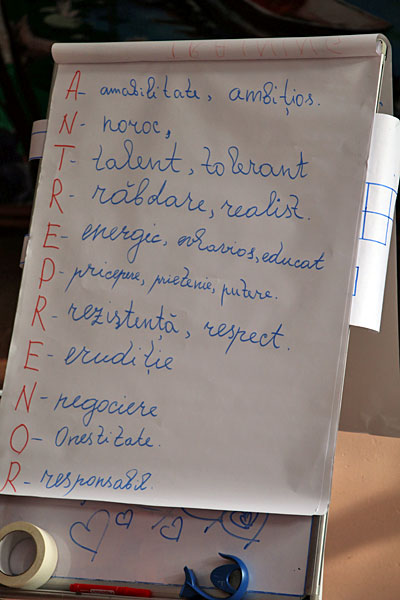 A - amabilitate, ambițios.
N - noroc,
T - talent, tolerant
R - răbdare, realist.
E - energic, educat
P - pricepere, prietenie, putere.
R - rezistență, respect.
E - erudiție
N - negociere
O - Onestitate.
R - responsabil.